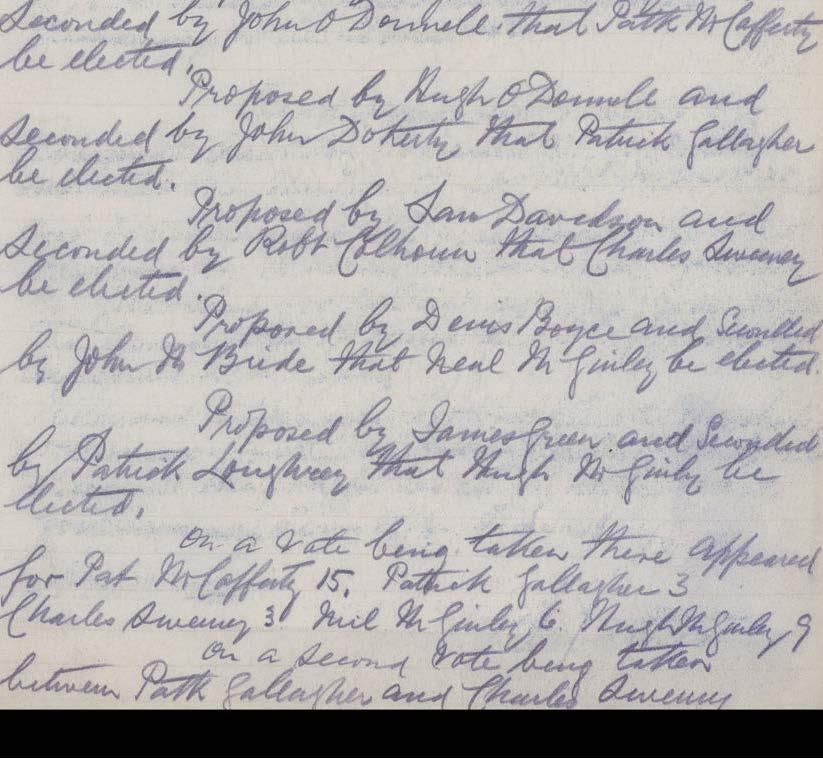 Seconded by John O'Donnell that Patk McCafferty
be elected.
Proposed by Hugh O'Donnell and
Seconded by John Doherty that Patrick Gallagher
be elected.
Proposed by Sam Davidson and
Seconded by Robt Colhoun that Charles Sweeney
be elected.
Proposed by Denis Boyce and Seconded
by John McBride that Neal McGinley be elected.
Proposed by James Green and Seconded
by Patrick Loughrey that Hugh McGinley be
elected.
On a vote being taken there appeared
for Pat McCafferty 15. Patrick Gallagher 3
Charles Sweeney 3. Neil McGinley 6. Hugh McGinley 9
On a second vote being taken
between Patk Gallagher and Charles Sweeney